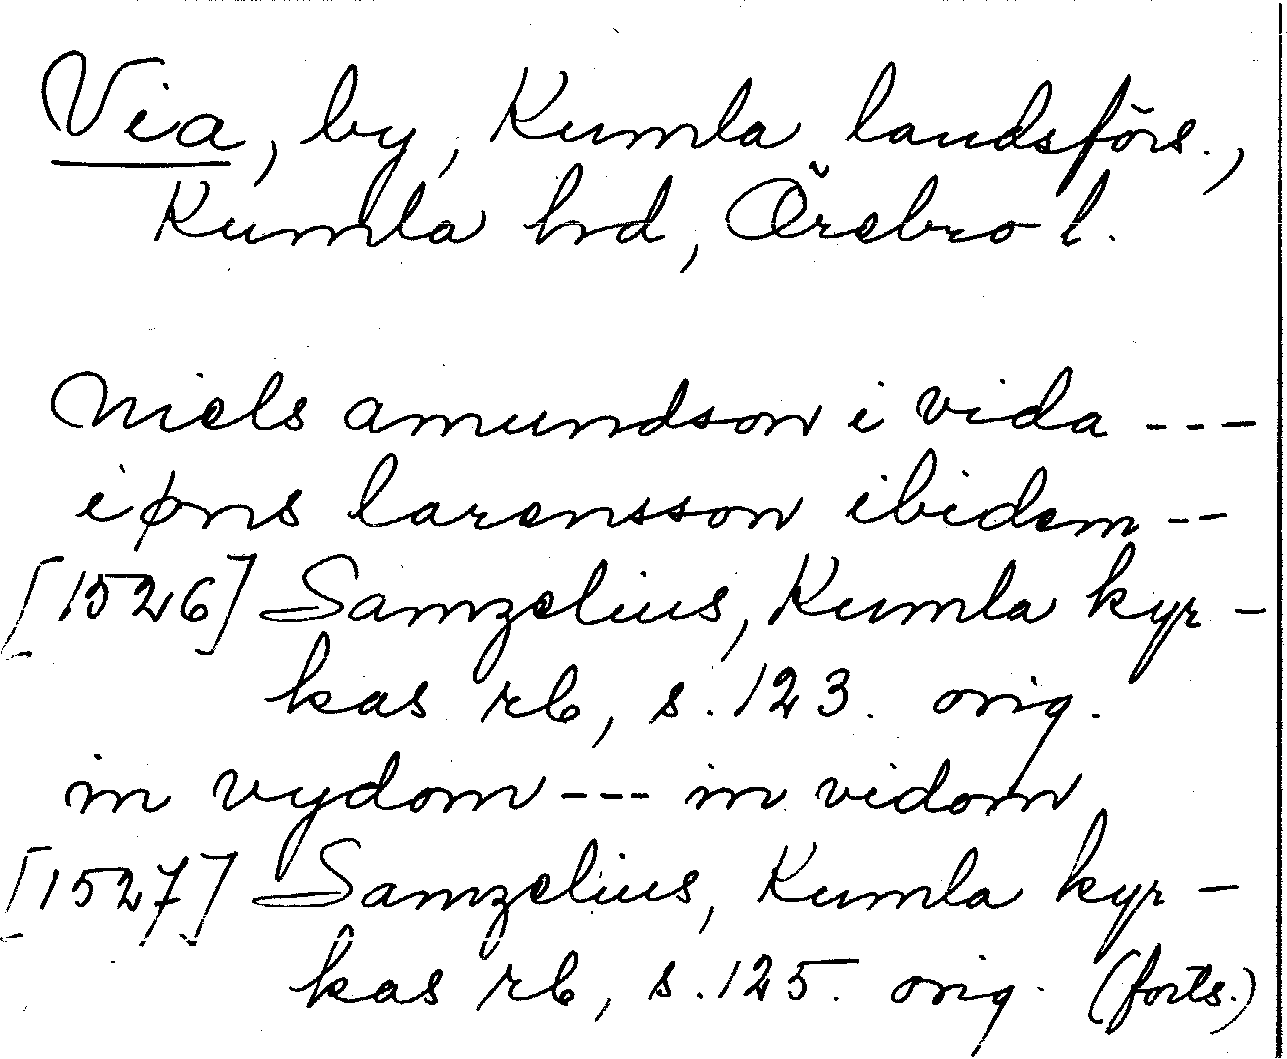 Via, by, Kumla landsförs.,
Kumla hd, Örebro l.
Niels amundson i vida ---
iøns larensson ibidem --
[1526] Samzelius, Kumla kyr-
kas rb, s. 123. orig.
in vydom --- in vidom
[1527] Samzelius, Kumla kyr-
kas rb, s. 125. orig. (forts.)